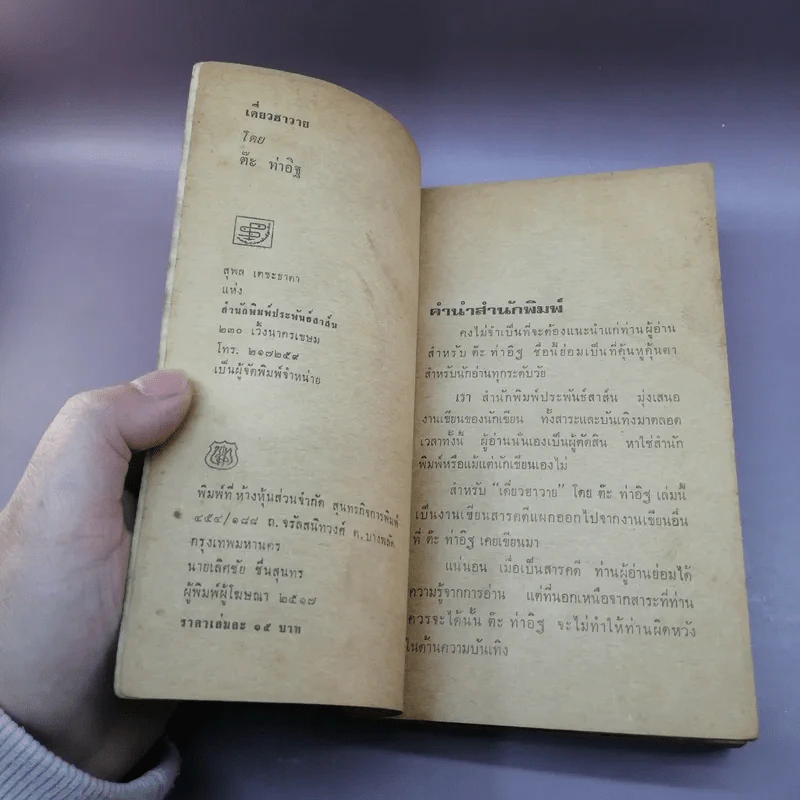 เดี่ยวฮาวาย
โดย
ต๊ะ ท่าอิฐ
สุพล เตชะธาดา
แห่ง
สำนักพิมพ์ประพันธ์สาส์น
๒๓๐ เวิ้งนาครเขษม
โทร. ๒๑๘๒๕๙
เป็นผู้จัดพิมพ์จำหน่าย
พิมพ์ที่ ห้างหุ้นส่วนจำกัด สุนทรกิจการพิมพ์
๔๕๔/๑๘๘ ถ.จรัลสนิทวงศ์ ต.บางพลัด
กรุงเทพมหานคร
นายเลิศชัย ชื่นสุนทร
ผู้พิมพ์ผู้โฆษณา ๒๕๑๗
ราคาเล่มละ ๑๕ บาท
คำนำสำนักพิมพ์
คงไม่จำเป็นที่จะต้องแนะนำแก่ท่านผู้อ่าน
สำหรับ ต๊ะ ท่าอิฐ ชื่อนี้ย่อมเป็นที่คุ้นหูคุ้นตา
สำหรับนักอ่านทุกระดับวัย
เรา สำนักพิมพ์ประพันธ์สาส์น มุ่งเสนอ
งานเขียนของนักเขียน ทั้งสาระและบันเทิงมาตลอด
เวลาทั้งนี้ ผู้อ่านนั่นเองเป็นผู้ตัดสิน หาใช่สำนัก
พิมพ์หรือแม้แต่นักเขียนเองไม่
สำหรับ "เดี่ยวฮาวาย" โดย ต๊ะ ท่าอิฐ เล่มนี้
เป็นงานเขียนสารคดีแผกออกไปจากงานเขียนอื่น
ที่ ต๊ะ ท่าอิฐ เคยเขียนมา
แน่นอน เมื่อเป็นสารคดี ท่านผู้อ่านย่อมได้
ความรู้จากการอ่าน แต่ที่นอกเหนือจากสาระที่ท่าน
ควรจะได้นั้น ต๊ะ ท่าอิฐ จะไม่ทำให้ท่านผิดหวัง
ในด้านความบันเทิง